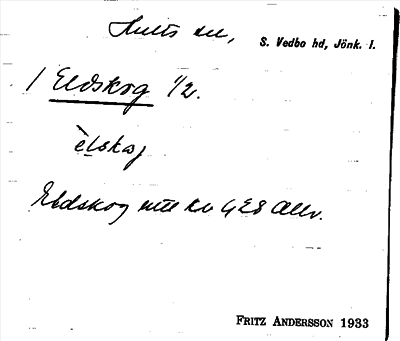 Hults sn, S. Vedbo hd, Jönk. l.
1 Eldskog 1/2.
èlskoj
Eldskog mtl kr 428 Allv.
FRITZ ANDERSSON 1933